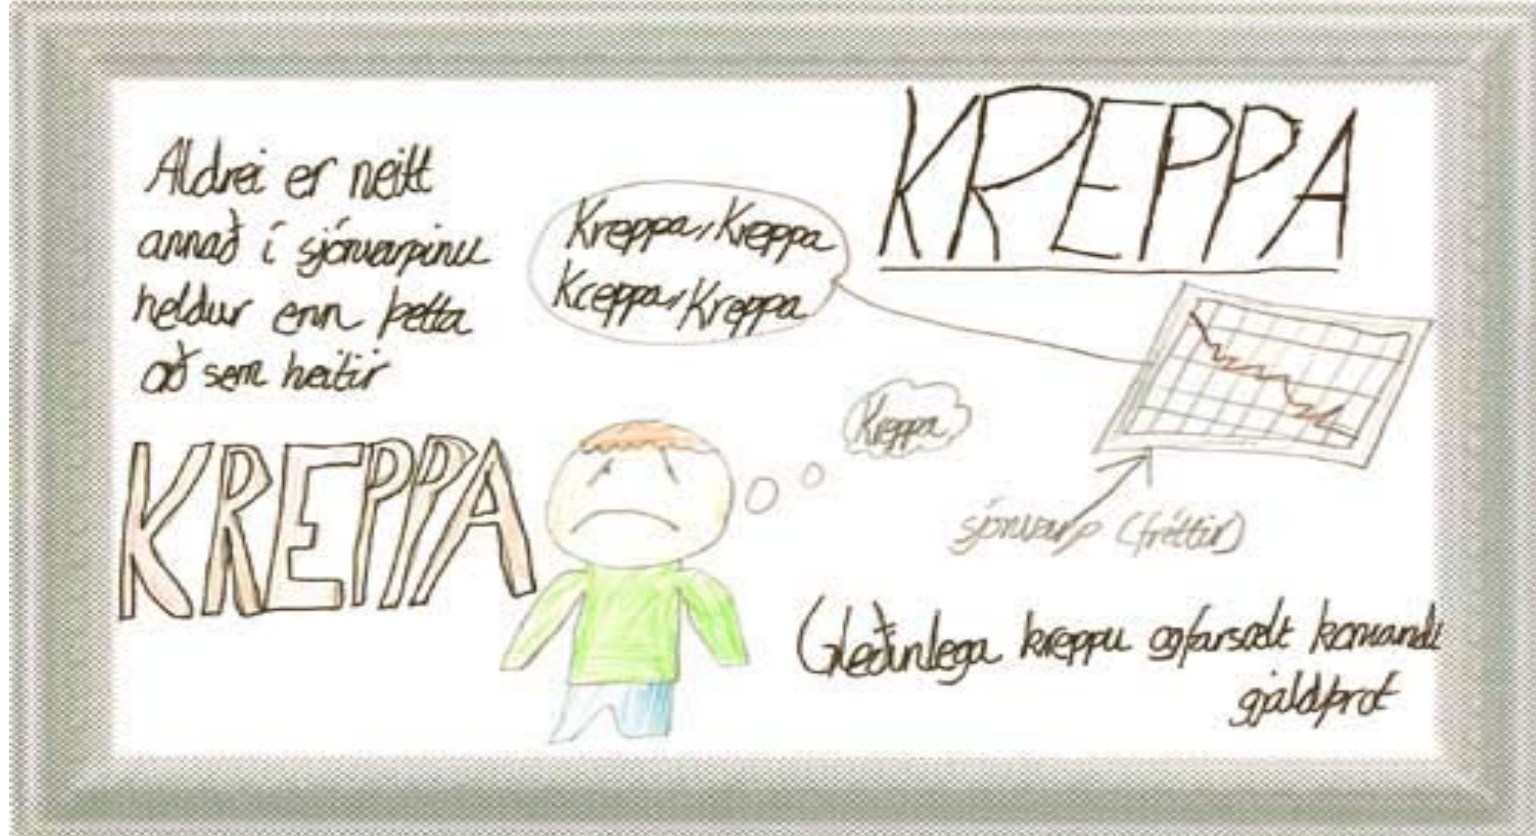 Aldrei er neitt
annað í sjónvarpinu
heldur enn þetta
að sem heitir
KREPPA
Kreppa, Kreppa
Kreppa, Kreppa
KREPPA
Kreppa
sjónvarp (fréttir)
Gleðinlega kreppu og farsælt komandi
gjaldþrot